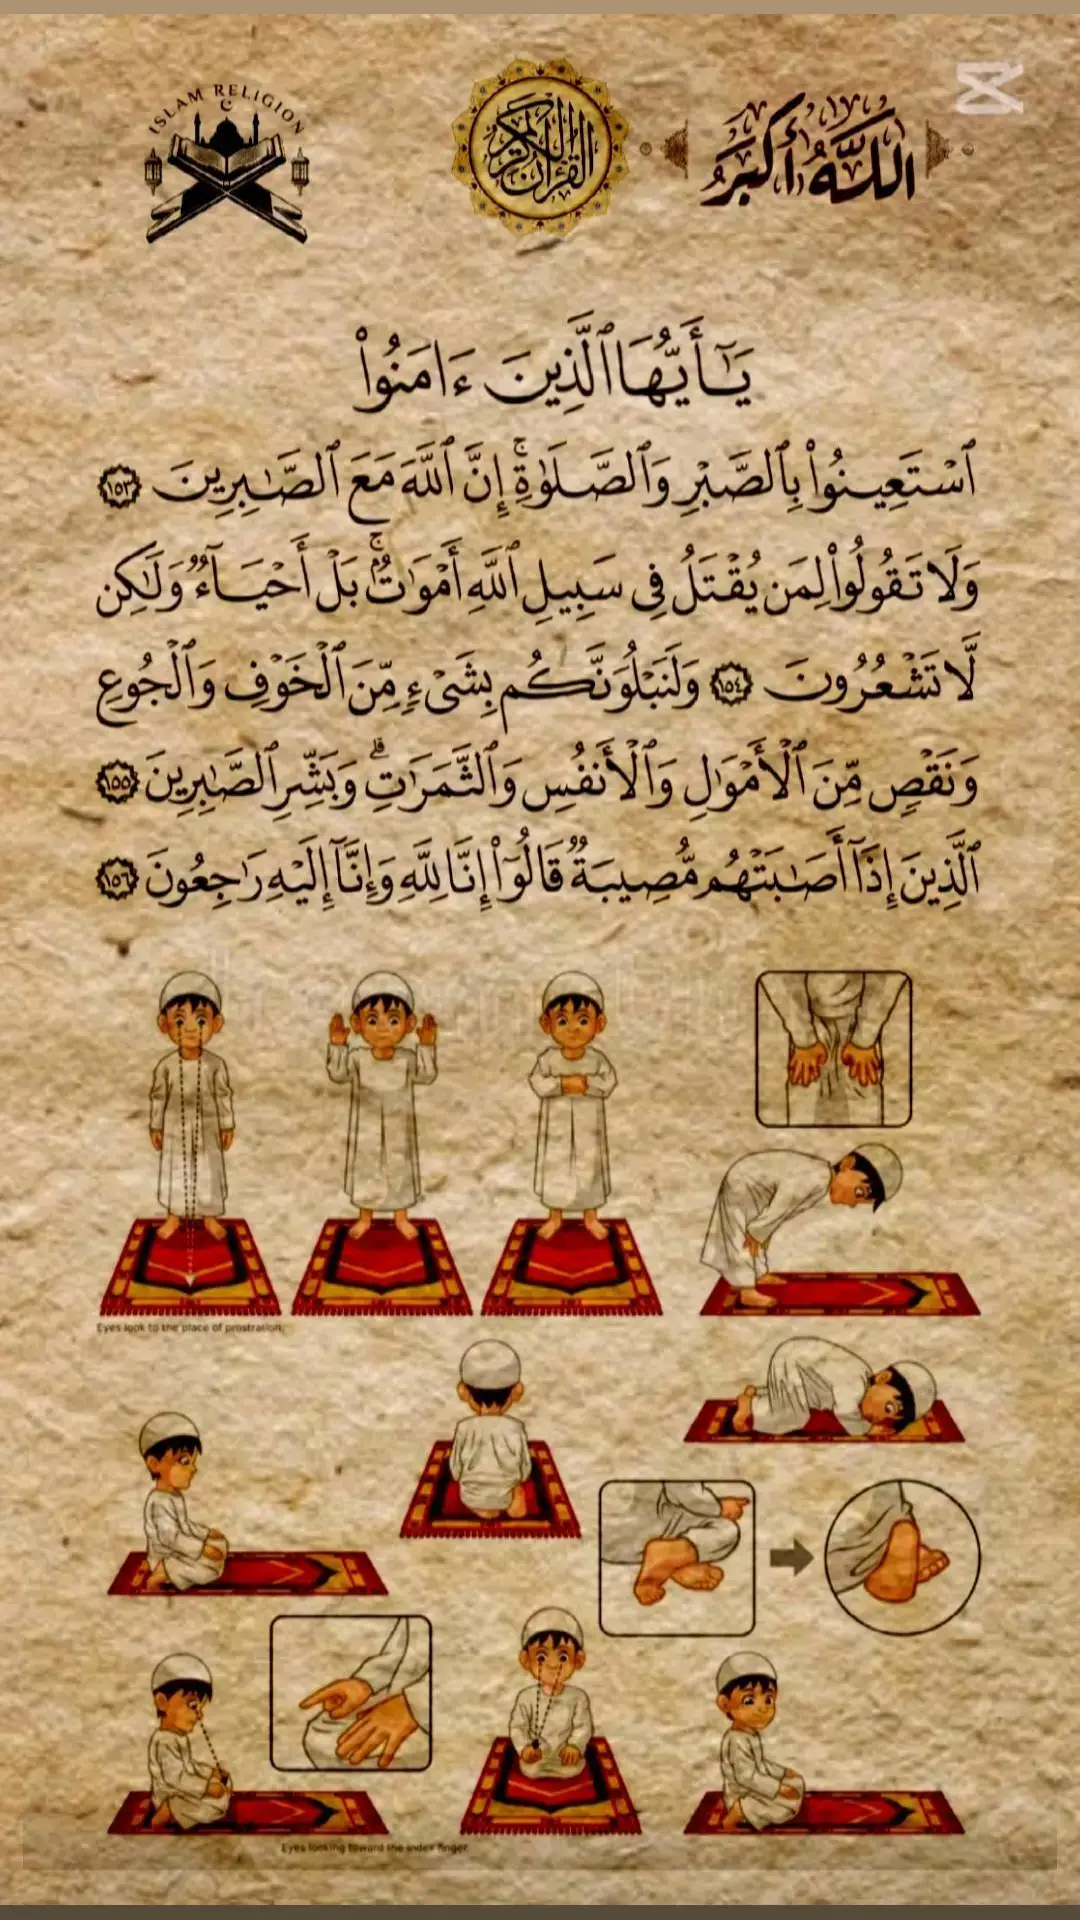 ISLAM RELIGION
القرآن الكريم
الله أكبر
يَـٰٓأَيُّهَا ٱلَّذِينَ ءَامَنُوا۟
ٱسْتَعِينُوا۟ بِٱلصَّبْرِ وَٱلصَّلَوٰةِ ۚ إِنَّ ٱللَّهَ مَعَ ٱلصَّـٰبِرِينَ ١٥٣
وَلَا تَقُولُوا۟ لِمَن يُقْتَلُ فِى سَبِيلِ ٱللَّهِ أَمْوَٰتٌۢ ۚ بَلْ أَحْيَآءٌ وَلَـٰكِن
لَّا تَشْعُرُونَ ١٥٤ وَلَنَبْلُوَنَّكُم بِشَىْءٍ مِّنَ ٱلْخَوْفِ وَٱلْجُوعِ
وَنَقْصٍ مِّنَ ٱلْأَمْوَٰلِ وَٱلْأَنفُسِ وَٱلثَّمَرَٰتِ ۗ وَبَشِّرِ ٱلصَّـٰبِرِينَ ١٥٥
ٱلَّذِينَ إِذَآ أَصَـٰبَتْهُم مُّصِيبَةٌ قَالُوٓا۟ إِنَّا لِلَّهِ وَإِنَّآ إِلَيْهِ رَٰجِعُونَ ١٥٦
Eyes look to the place of prostration.
Eyes looking toward the index finger